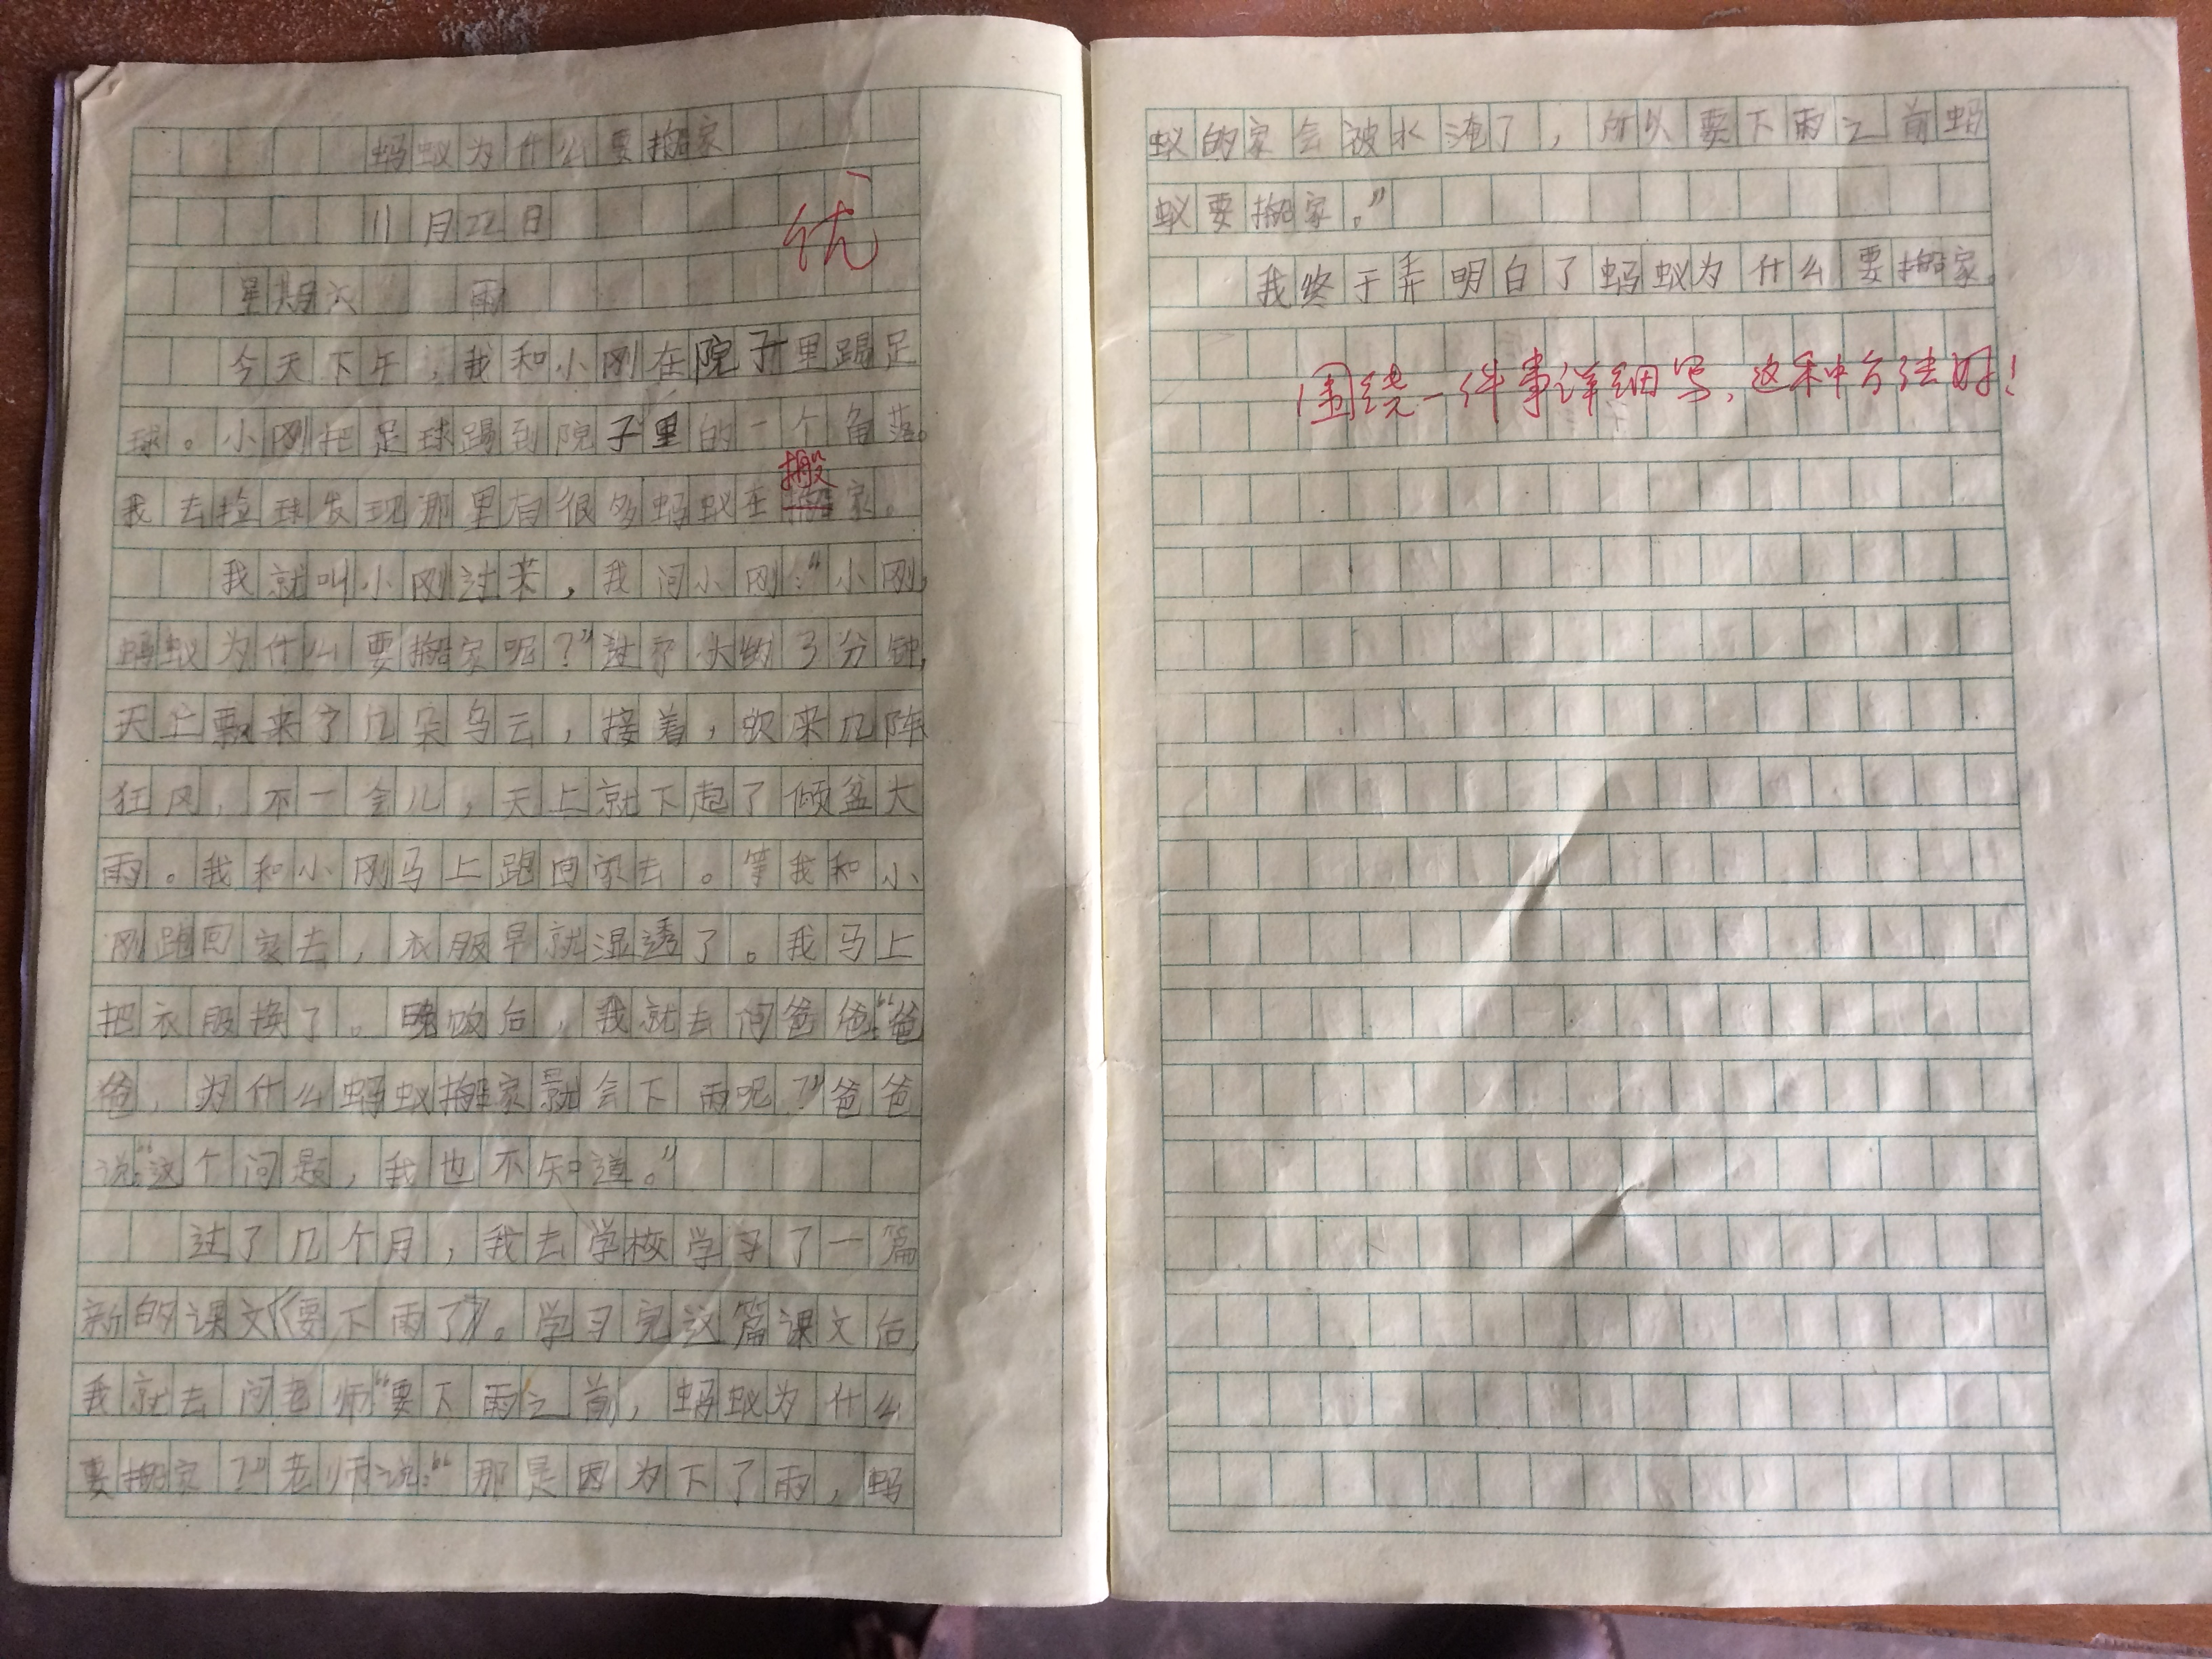 蚂蚁为什么要搬家
11月22日
优
星期六 雨
今天下午，我和小刚在院子里踢足
球。小刚把足球踢到院子里的一个角落。
搬
我去捡球发现那里有很多蚂蚁在搬家。
我就叫小刚过来，我问小刚：“小刚，
蚂蚁为什么要搬家呢？”过了大约3分钟，
天上飘来了几朵乌云，接着，吹来几阵
狂风，不一会儿，天上就下起了倾盆大
雨。我和小刚马上跑回家去。等我和小
刚跑回家去，衣服早就湿透了。我马上
把衣服换了。晚饭后，我就去问爸爸：“爸
爸，为什么蚂蚁搬家就会下雨呢？”爸爸
说：“这个问题，我也不知道。”
过了几个月，我去学校学习了一篇
新的课文《要下雨了》。学习完这篇课文后，
我就去问老师“要下雨之前，蚂蚁为什么
要搬家？”老师说：“那是因为下了雨，蚂
蚁的家会被水淹了，所以要下雨之前蚂
蚁要搬家。”
我终于弄明白了蚂蚁为什么要搬家。
围绕一件事详细写，这种方法好！